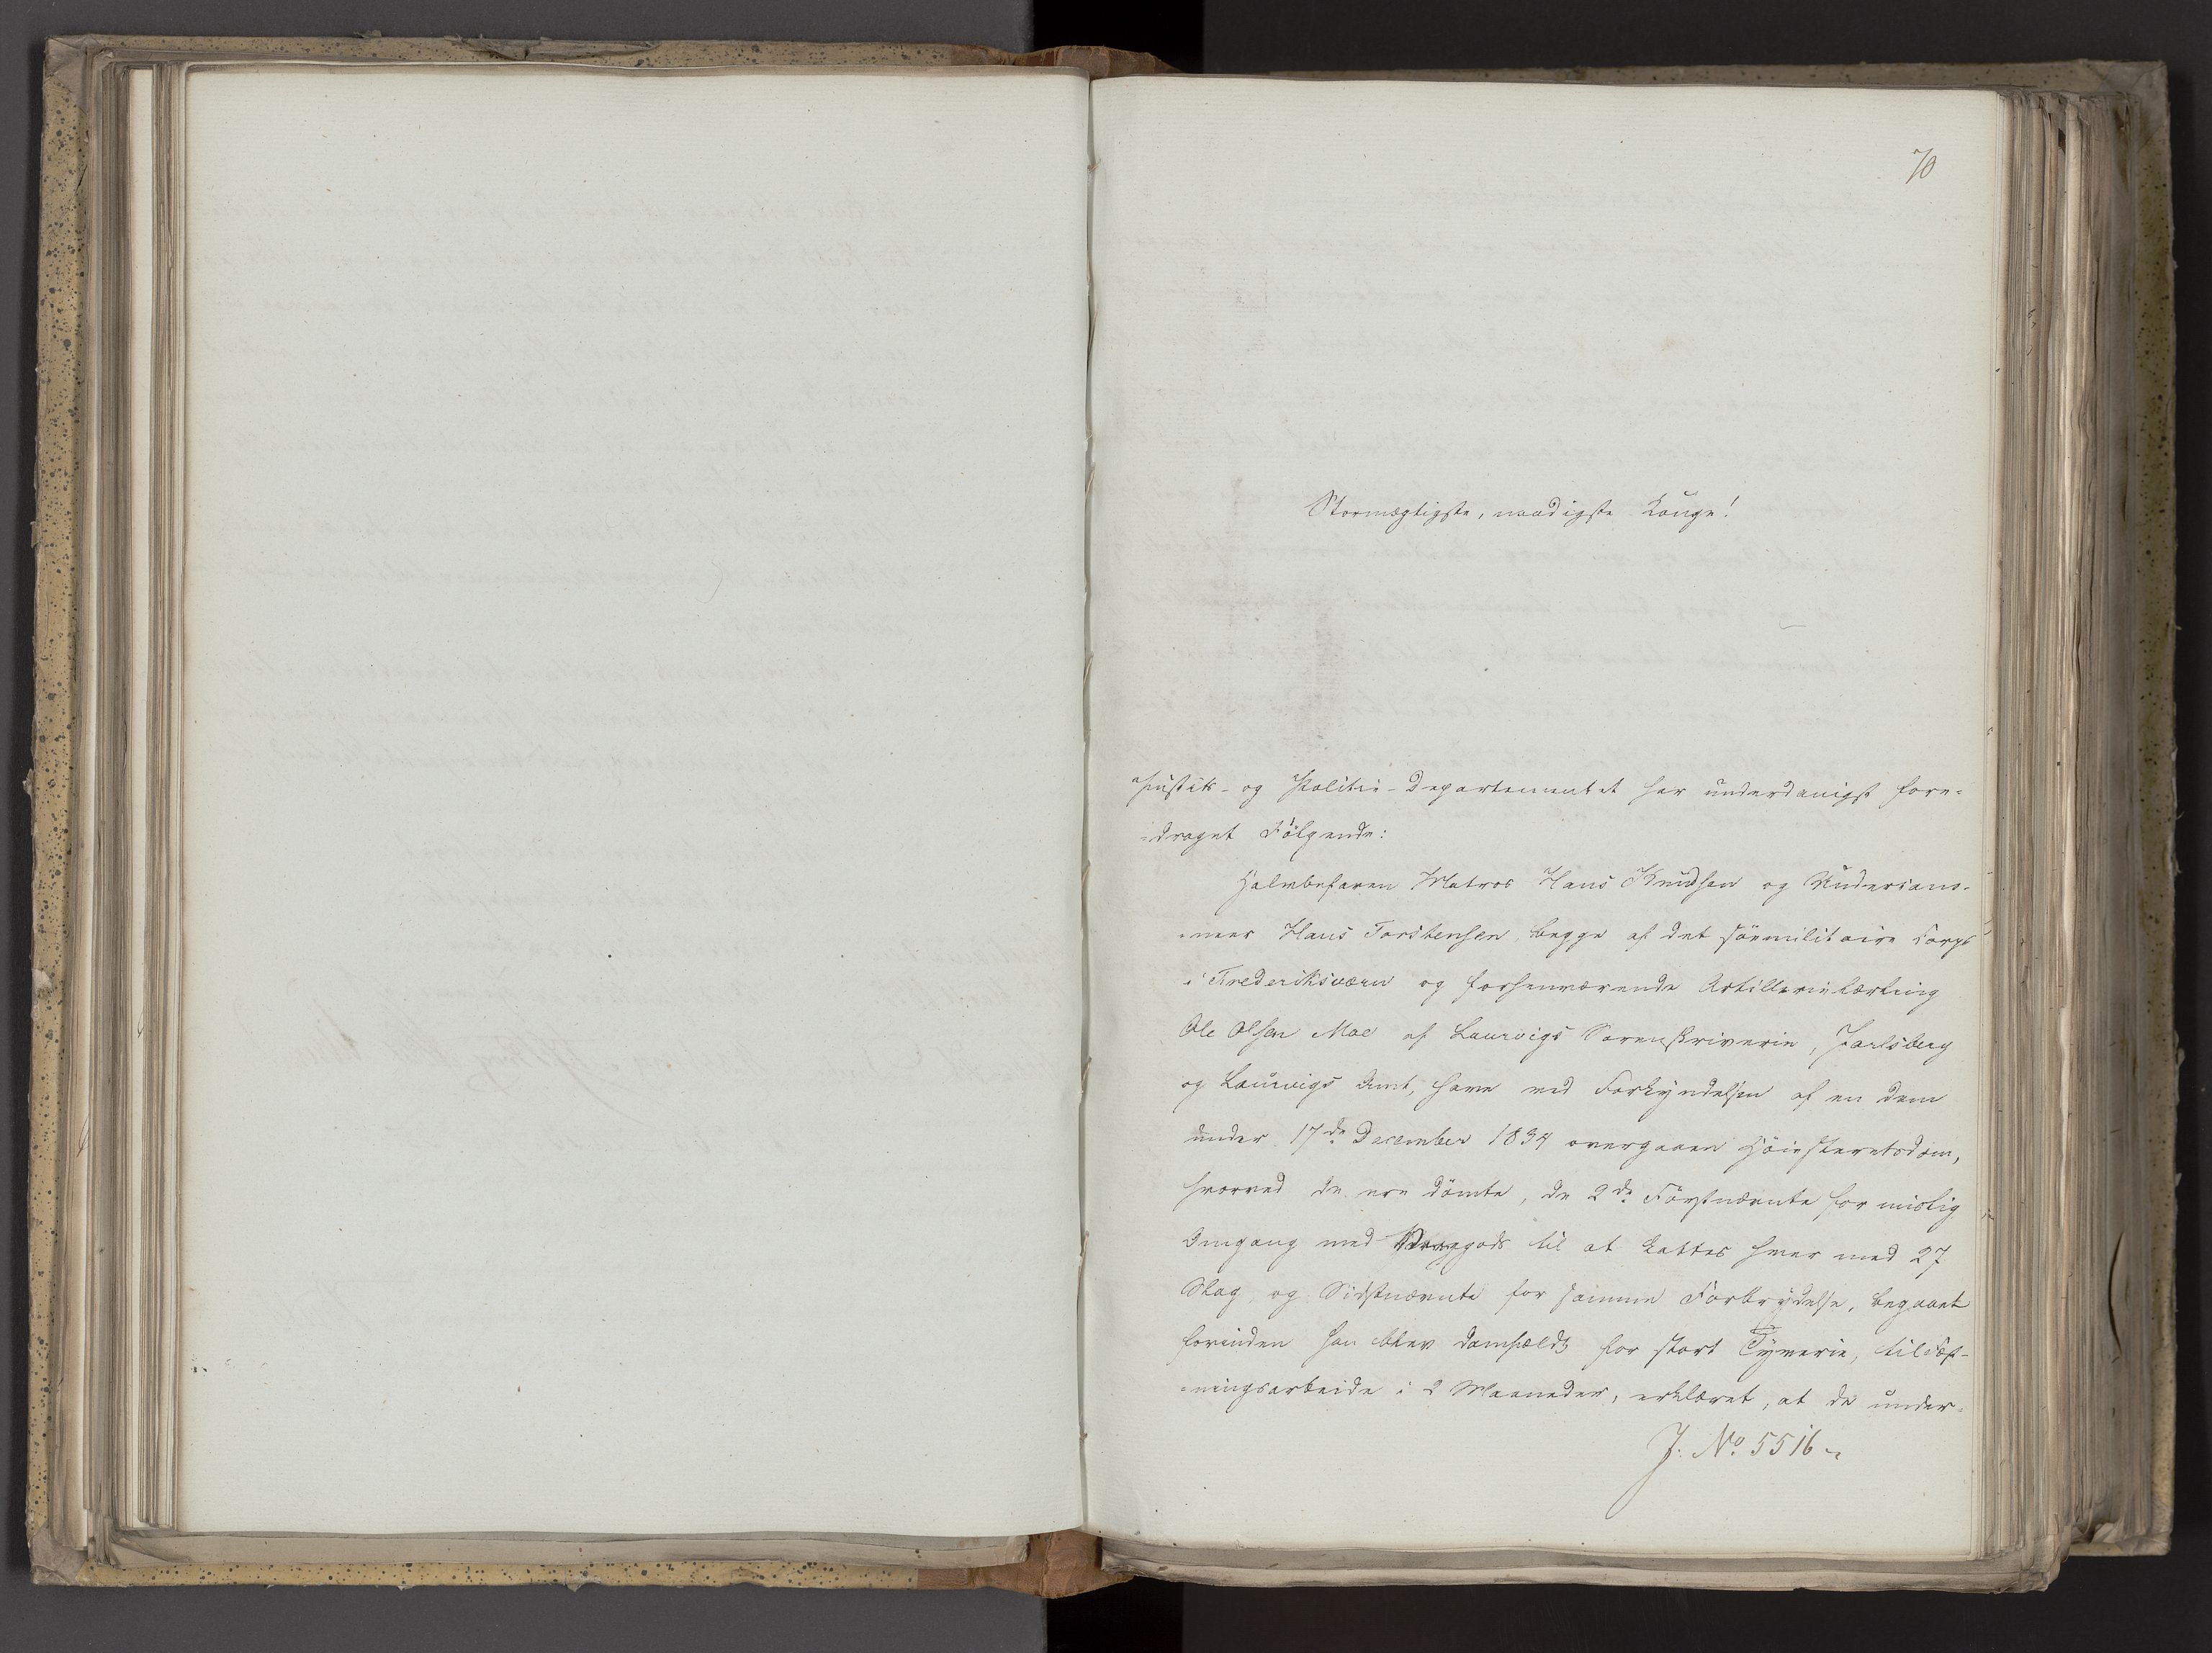 70
Stormægtigste, naadigste Konge!
Justits- og Politie-Departementet har underdanigst fore-
-draget Følgende:
Halvbefaren Matros Hans Knudsen og Underkano-
-neer Hans Torstensen, begge af det søemilitaire Corps
i Frederiksværn og forhenværende Artillerielærling
Ole Olsen Moe af Laurvigs Sorenskriverie, Jarlsberg
og Laurvigs Amt, have ved Forkyndelsen af en dem
under 17de December 1834 overgaaen Høiesteretsdom,
hvorved de ere dömte, de 2de Førstnævnte for mislig
Omgang med Vraggods til at kattes hver med 27
Slag, og Sidstnævnte for samme Forbrydelse, begaaet
forinden han blev domfældt for stort Tyverie, til Fæst-
-ningsarbeide i 2 Maaneder, erklæret, at de under-
J: No. 5516